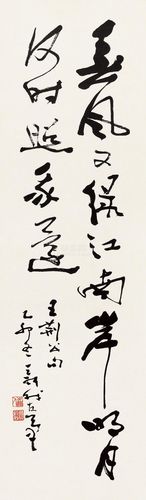 春风又绿江南岸明月
何时照我還
王荆公句
乙卯